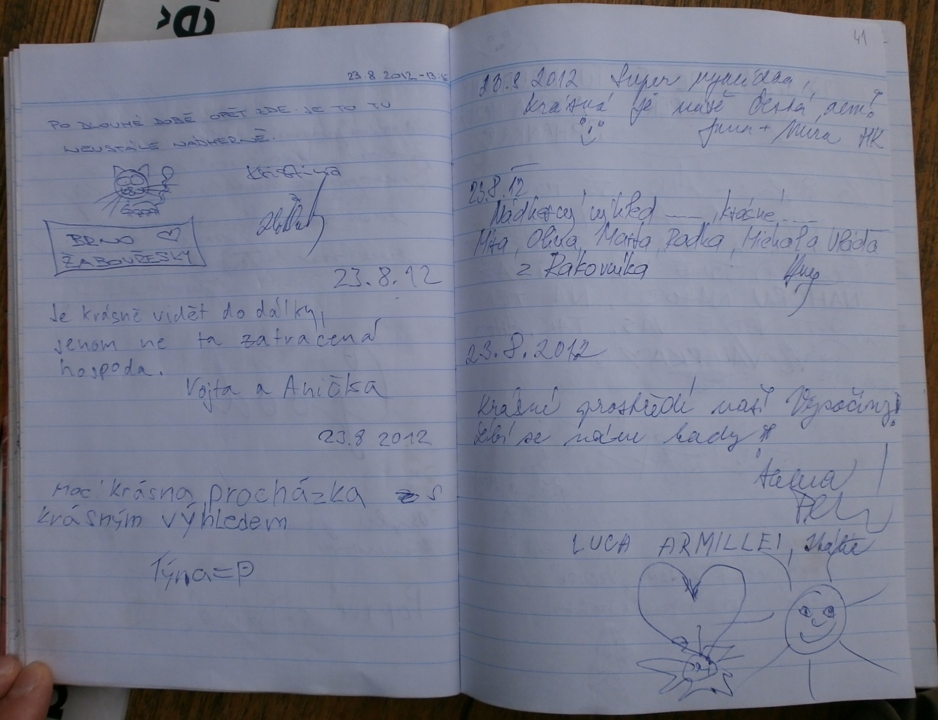 ě
23.8 2012 - 13:
PO DLOUHÉ DOBĚ OPĚT ZDE. JE TO TU
NEUSTÁLE NÁDHERNĚ.
Kristina
BRNO
ŽABOVŘESKY
23.8.12
Je krásně vidět do dálky,
jenom ne ta zatracená
hospoda.
Vojta a Anička
23.8 2012
Moc krásna procházka s
krásným výhledem
Týna=P
41
23.8 2012 Super vyhlídka,
krásná je naše Česká zem!
+ Míra HK
23.8.12
Nádherný výhled ---- krásné ----
Míťa, Olina, Marta, Radka, Michala Vláďa
z Rakovníka
23.8.2012
Krásné prostředí naší Vysočiny!
Líbí se nám tady
LUCA ARMILLEI,